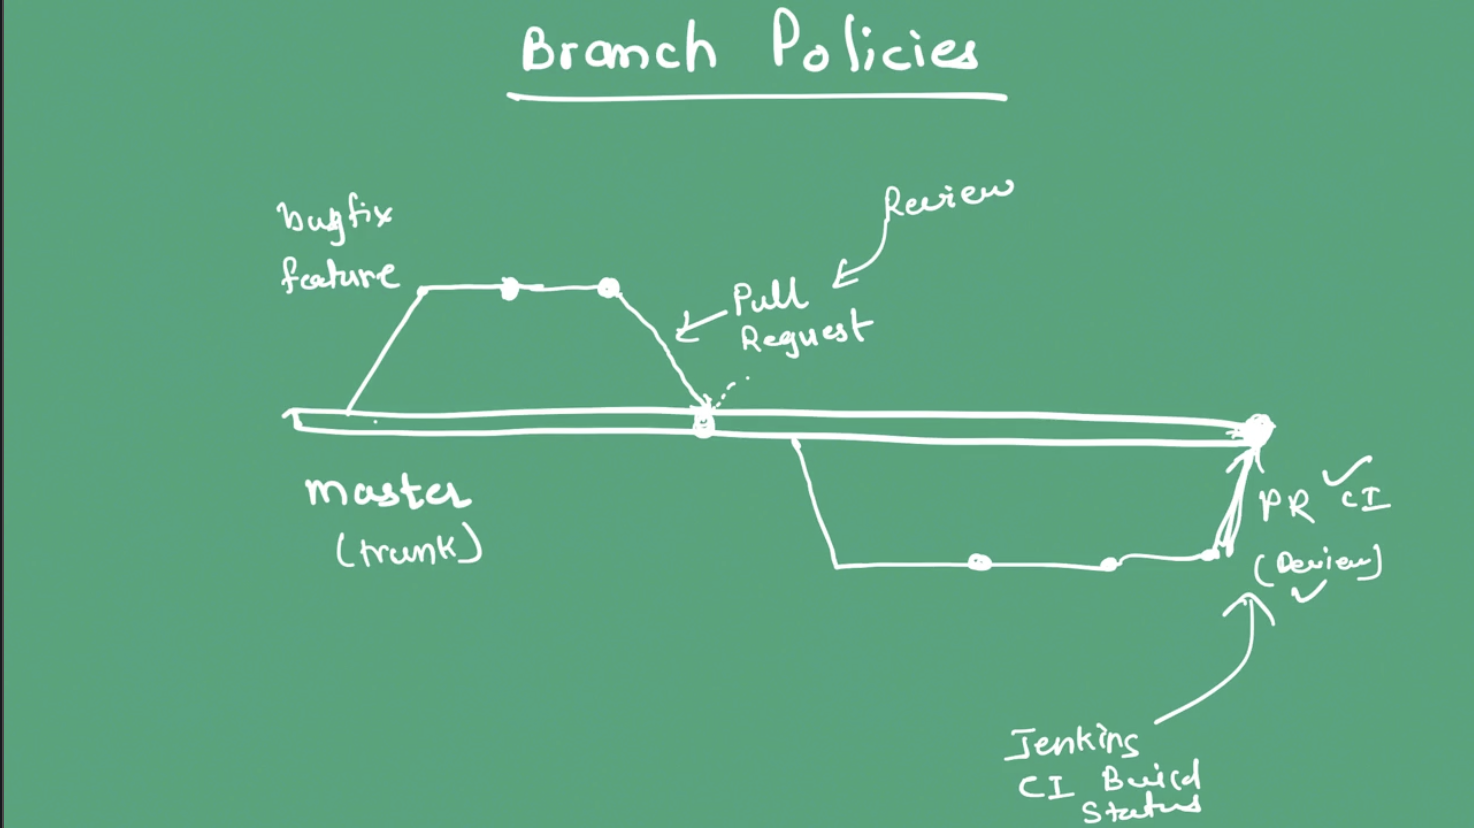 Branch Policies
bugfix
feature
Review
Pull
Request
master
(trunk)
PR CI
(Review)
Jenkins
CI Build
Status